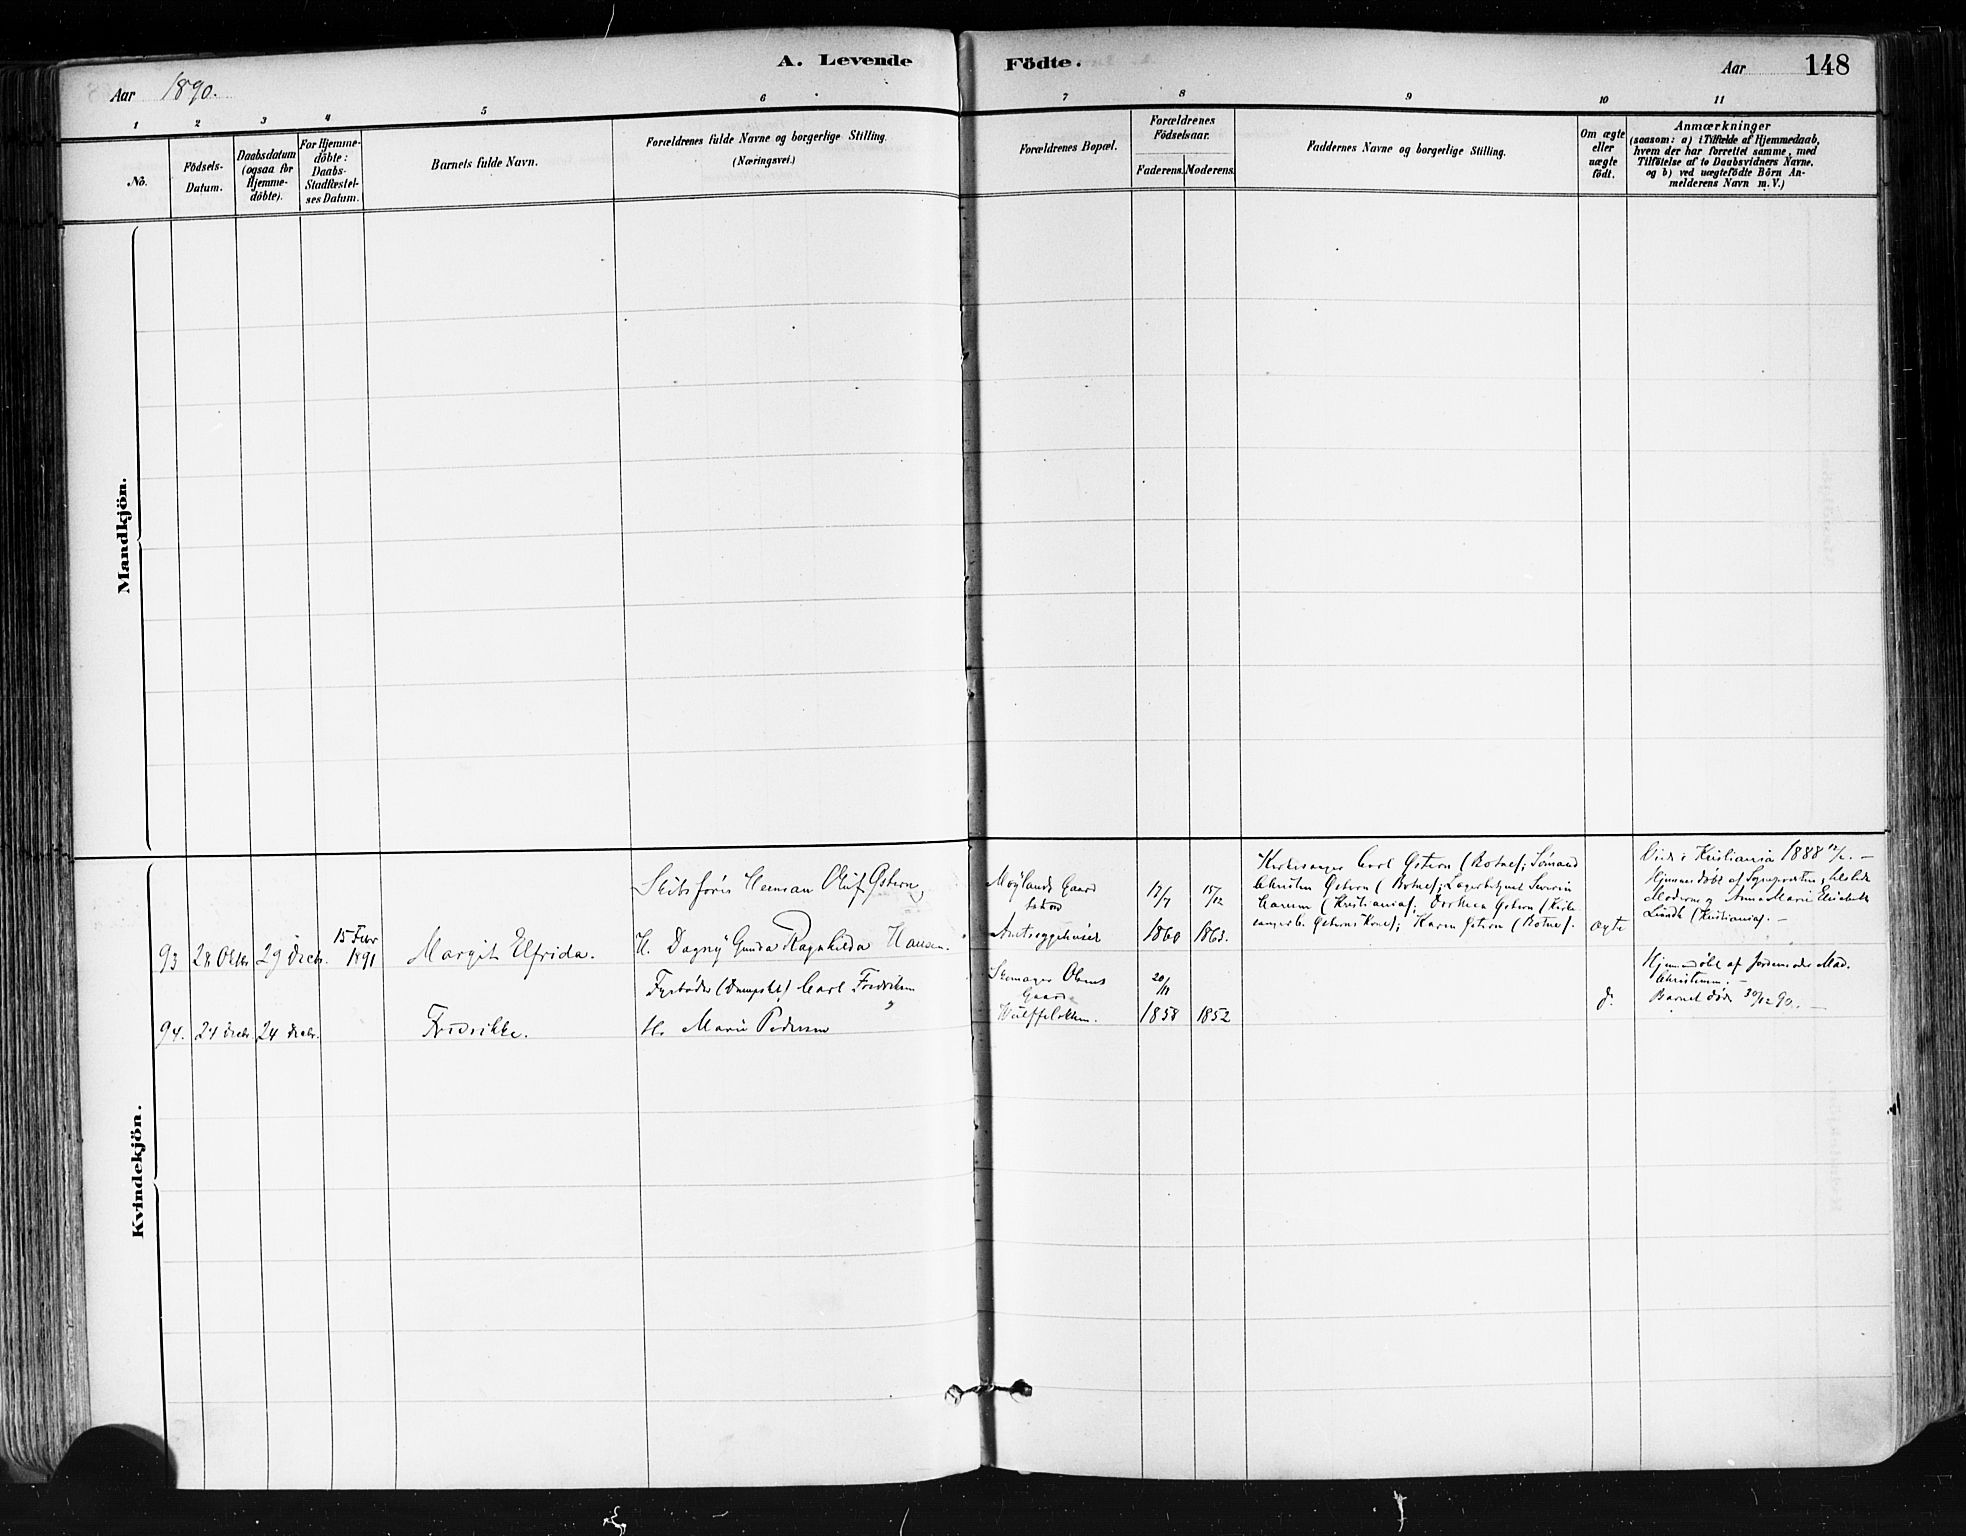 Aar 1890.
A. Levende Födte.
Aar 148
1 2 3 4 5 6 7 8 9 10 11
No.
Födsels-
Datum.
Daabsdatum
(ogsaa for
Hjemme-
döbte).
For Hjemme-
döbte:
Daabs-
Stadfæstel-
ses Datum.
Barnets fulde Navn.
Forældrenes fulde Navne og borgerlige Stilling.
(Næringsvei.)
Forældrenes Bopæl.
Forældrenes
Födselsaar.
Faderens. Moderens.
Faddernes Navne og borgerlige Stilling.
Om ægte
eller
uægte
födt.
Anmærkninger
(saasom: a) i Tilfælde af Hjemmedaab,
hvem der har forrettet samme, med
Tilföielse af to Daabsvidners Navne.
og b) ved uægtefödte Börn An-
melderens Navn m. V.)
Mandkjön.
Kvindekjön.
93 28 Okter 29 Decbr. 15 Febr
1891
Margit Elfrida.
Skibsförer Herman Oluf Østern,
H. Dagny Gunda Ragnhilda Hansen.
Møylands Gaard
17/7 15/12
1860 1863.
Kirkesanger Carl Østern (Botne); Sömand
Christen Østern (Botne); Severin
(Kristiania); Østern (Kirke
sangerb. Østerns Kone); Karen Østern (Botne).
ægte
Viede i Kristiania 1888
Hjemmedöbt af Sogneprsten,
Moderen og Anna Marie
(Kristiania). -
94. 24 Decbr 24 Decbr.
Fredrikke.
Fyrböder (Dampskb) Carl Fredriksen
H. Marie Pedersen
Skomager Olsens
Gaard
20/11
1858 1852
d.
Hjemmedöbt af Jordemoder Mad.
Christensen. -
Barnet död 30/12 90. -